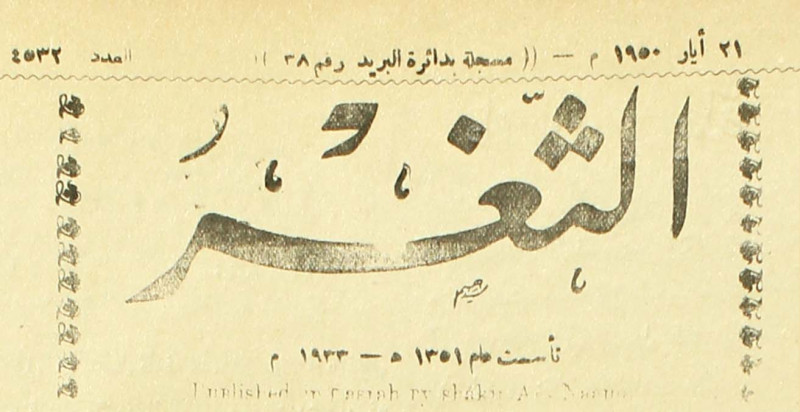 ٢١ أيار ١٩٥٠ م — (( مسجلة بدائرة البريد رقم ٣٨ )) العدد ٤٥٣٢
الثَّغْرُ
تأسست عام ١٣٥١ ه — ١٩٣٣ م
Published in Basrah by Shakir